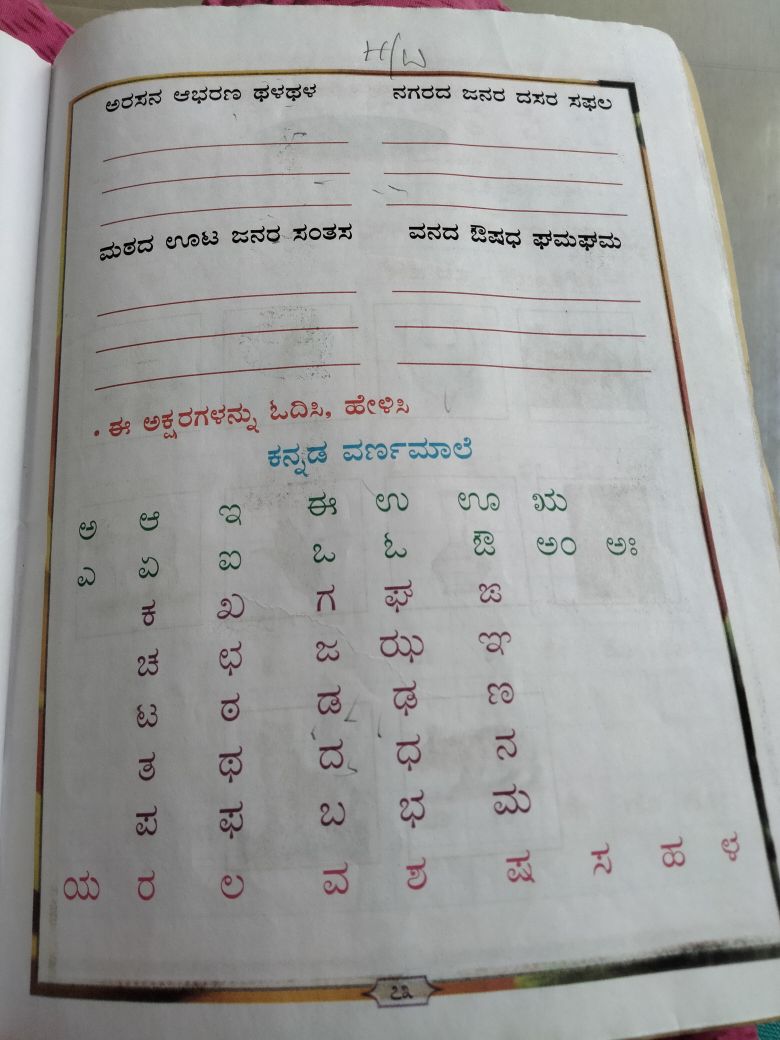 H/W
ಅರಸನ ಆಭರಣ ಥಳಥಳ ನಗರದ ಜನರ ದಸರ ಸಫಲ
ಮಠದ ಊಟ ಜನರ ಸಂತಸ ವನದ ಔಷಧ ಘಮಘಮ
• ಈ ಅಕ್ಷರಗಳನ್ನು ಓದಿಸಿ, ಹೇಳಿಸಿ
ಕನ್ನಡ ವರ್ಣಮಾಲೆ
ಅ ಆ ಇ ಈ ಉ ಊ ಋ
ಎ ಏ ಐ ಒ ಓ ಔ ಅಂ ಅಃ
ಕ ಖ ಗ ಘ ಙ
ಚ ಛ ಜ ಝ ಞ
ಟ ಠ ಡ ಢ ಣ
ತ ಥ ದ ಧ ನ
ಪ ಫ ಬ ಭ ಮ
ಯ ರ ಲ ವ ಶ ಷ ಸ ಹ ಳ
೭೩